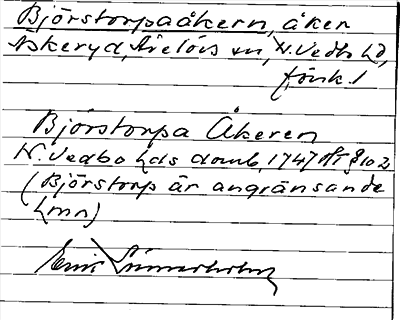 Björstorpaåkern, åker
Askeryd, Årelövs sn, N. Vedb hd,
försk. 1
Björstorpa Åkeren
N. Vedbo hds domb. 1747 §102
(Björstorp är angränsande
hmn)